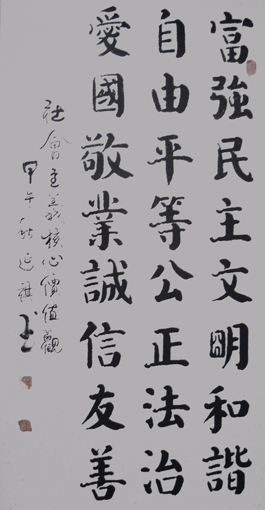 富強民主文明和諧
自由平等公正法治
愛國敬業誠信友善
社會主義核心價值觀
甲午秋延祺書